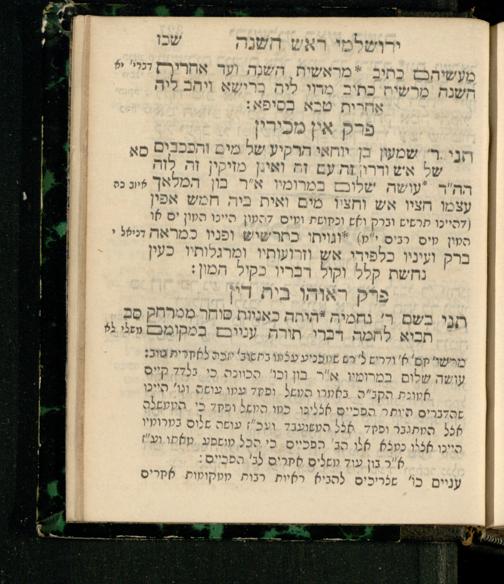 ירושלמי ראש השנה שכו
מעשיהם כתיב *מראשית השנה ועד אחרית דברי' יא
השנה מרשית כתיב מהוי ליה ברישא ויהב ליה
אחרית טבא בסיפא:
פרק אין מכירין
תני ר' שמעון בן יוחאי הרקיע של מים והכבבים סא
של אש ודרין זה עם זה ואינן מזיקין זה לזה
הה"ד *עושה שלום במרומיו א"ר בון המלאך איוב כה
עצמו חציו אש וחציו מים ואית ביה חמש אפין
(דהיינו תרשיש וברק ואש ונחושת ומים דהמון היינו המון ים או
המון מים רבים י"מ) *וגויתו כתרשיש ופניו כמראה דניאל י
ברק ועיניו כלפידי אש וזרועותיו ומרגלותיו כעין
נחשת קלל וקול דבריו כקול המון:
פרק ראוהו בית דין
תני בשם ר' נחמיה *היתה כאניות סוחר ממרחק סב
תביא לחמה דברי תורה עניים במקומם משלי לא
עושה שלום במרומיו א"ר בון וכו' הכוונה כי
אמונת הקב"ה באמרו המשל ופחד עמו עושה וגו' היינו
שהדברים היותר הפכיים אצלינו כמו המשל ופחד כי הממשלה
אצל המתגבר ופחד אצל המשועבד ועכ"ז עושה שלום במרומיו
היינו אצלו נמצא אלו הב' הפכיים כי הכל מושפע מאתו ועז"
א"ר בון עוד משלים אחרים לב' הפכיים:
עניים כו' שצריכים להביא ראיות רבות ממקומות אחרים